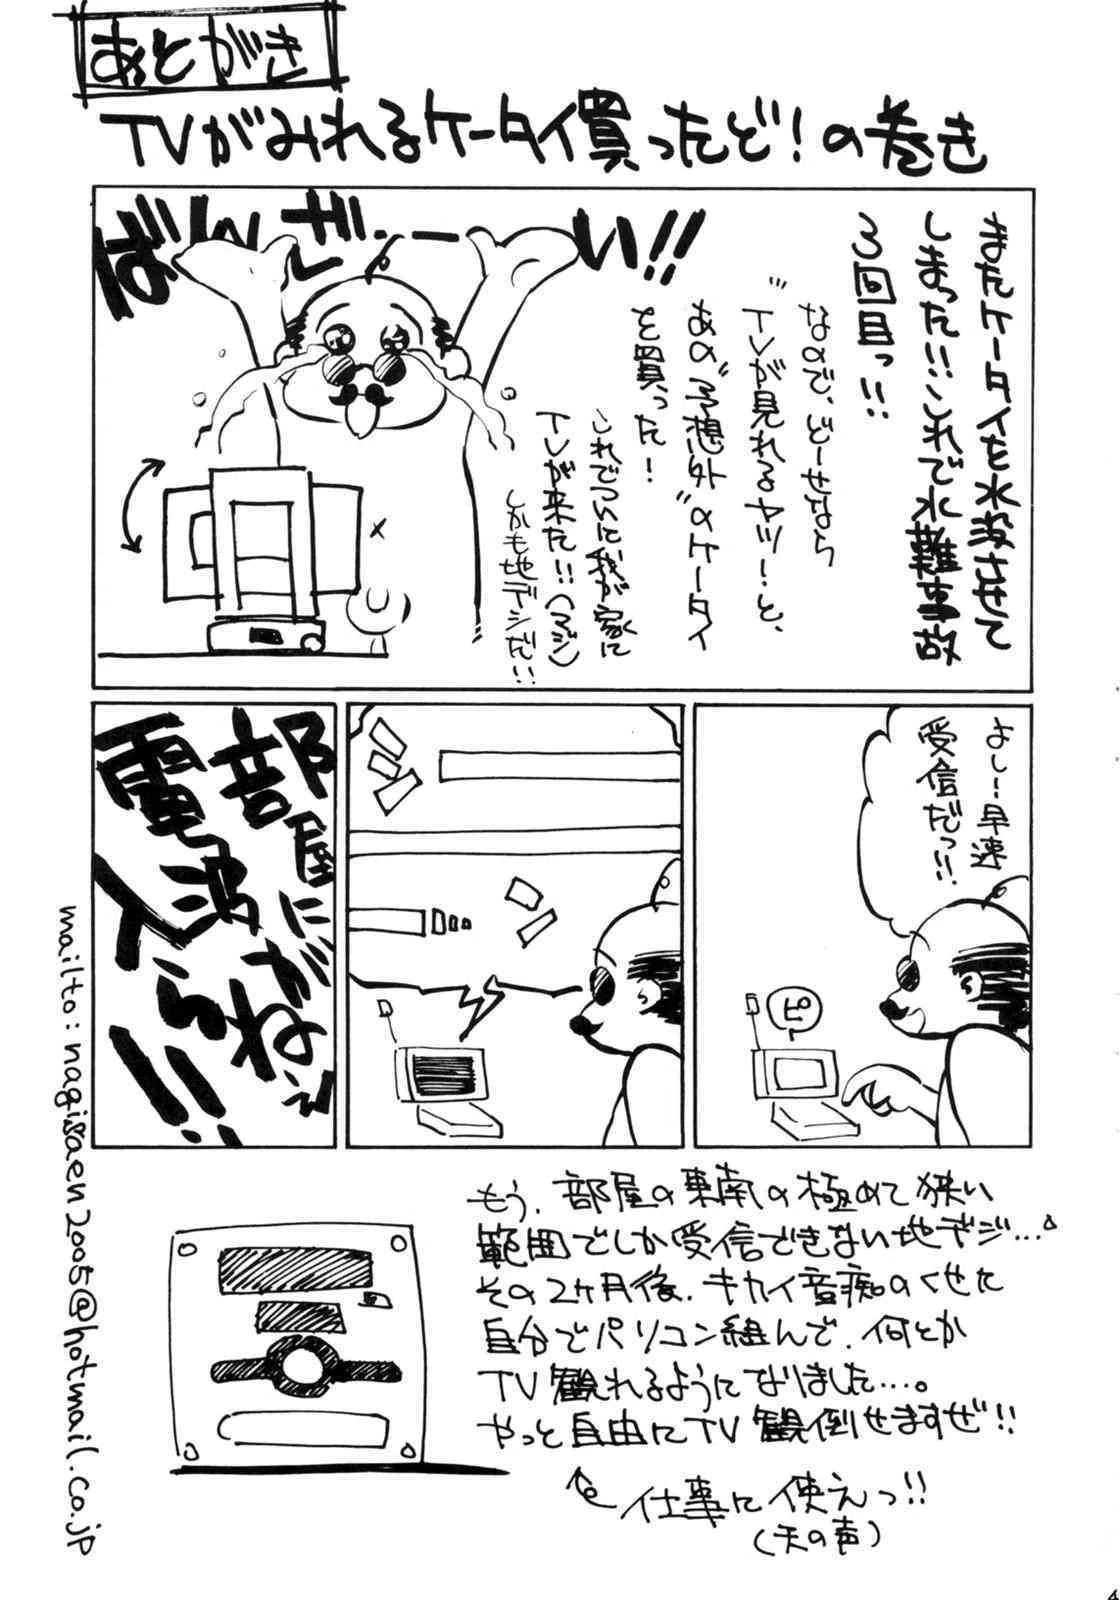 あとがき
TVがみれるケータイ買ったど!の巻き
またケータイを水没させて
しまった!!これで水難事故
3回目っ!!
なので、どーせなら
"TVが見れるヤツ!"と、
あの"予想外"のケータイ
を買った!
ばんざーーい!!
これでついに我が家に
TVが来た!!(マジ)
しかも地デジだ!!
よし!早速
受信だっ!!
ピ
部屋に
電波がねぇ
入らー!!
もう、部屋の東南の極めて狭い
範囲でしか受信できない地デジ…。
その2ヶ月後、キカイ音痴のくせに
自分でパソコン組んで、何とか
TV観れるようになりました…。
やっと自由にTV観倒せますぜ!!
仕事に使えっ!!
(天の声)
mailto:nagisaen2005@hotmail.co.jp
4